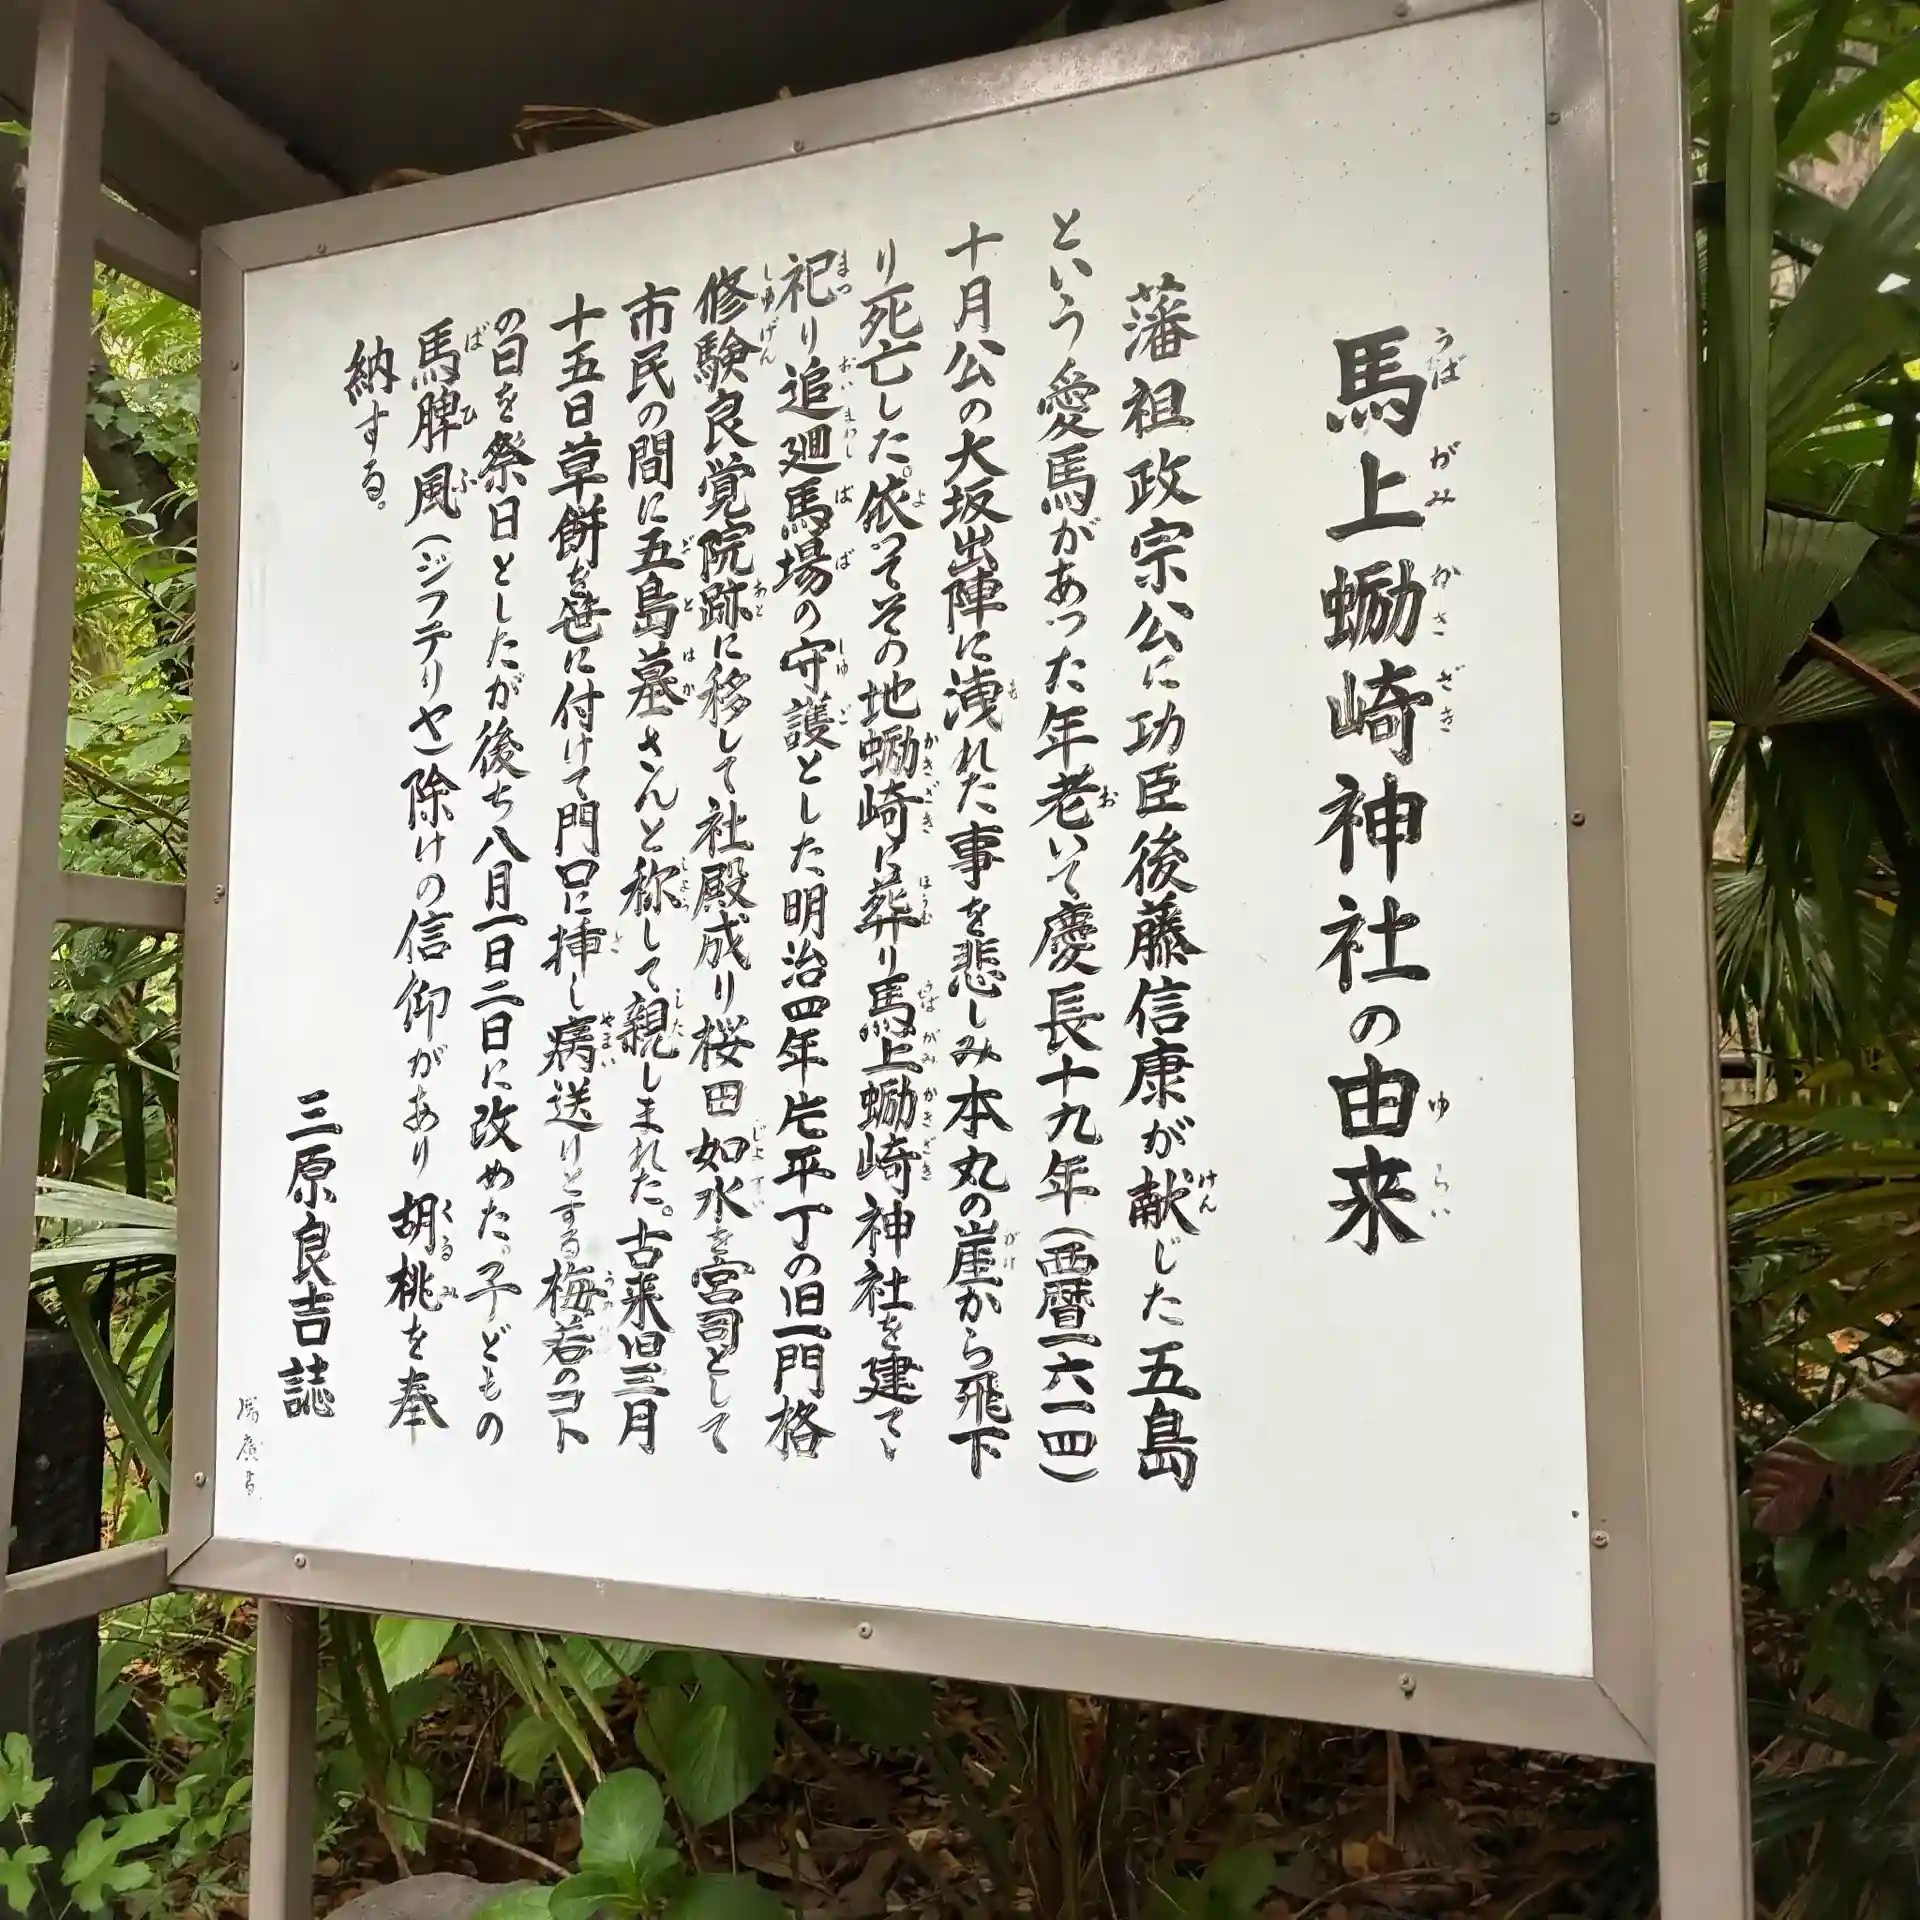 馬上蛎崎神社の由来
藩祖政宗公に功臣後藤信康が献じた五島
という愛馬があった年老いて慶長十九年(西暦一六一四)
十月公の大坂出陣に洩れた事を悲しみ本丸の崖から飛下
り死亡した。依ってその地蛎崎に葬り馬上蛎崎神社を建て、
祀り追廻馬場の守護とした明治四年片平丁の旧一門格
修験良覚院跡に移して社殿成り桜田如水を宮司として
市民の間に五島墓さんと称して親しまれた。古来旧三月
十五日草餅を笹に付けて門口に挿し病送りとする梅若のコト
の日を祭日としたが後ち八月一日二日に改めた。子どもの
馬脾風(ジフテリヤ)除けの信仰があり胡桃を奉
納する。
三原良吉誌